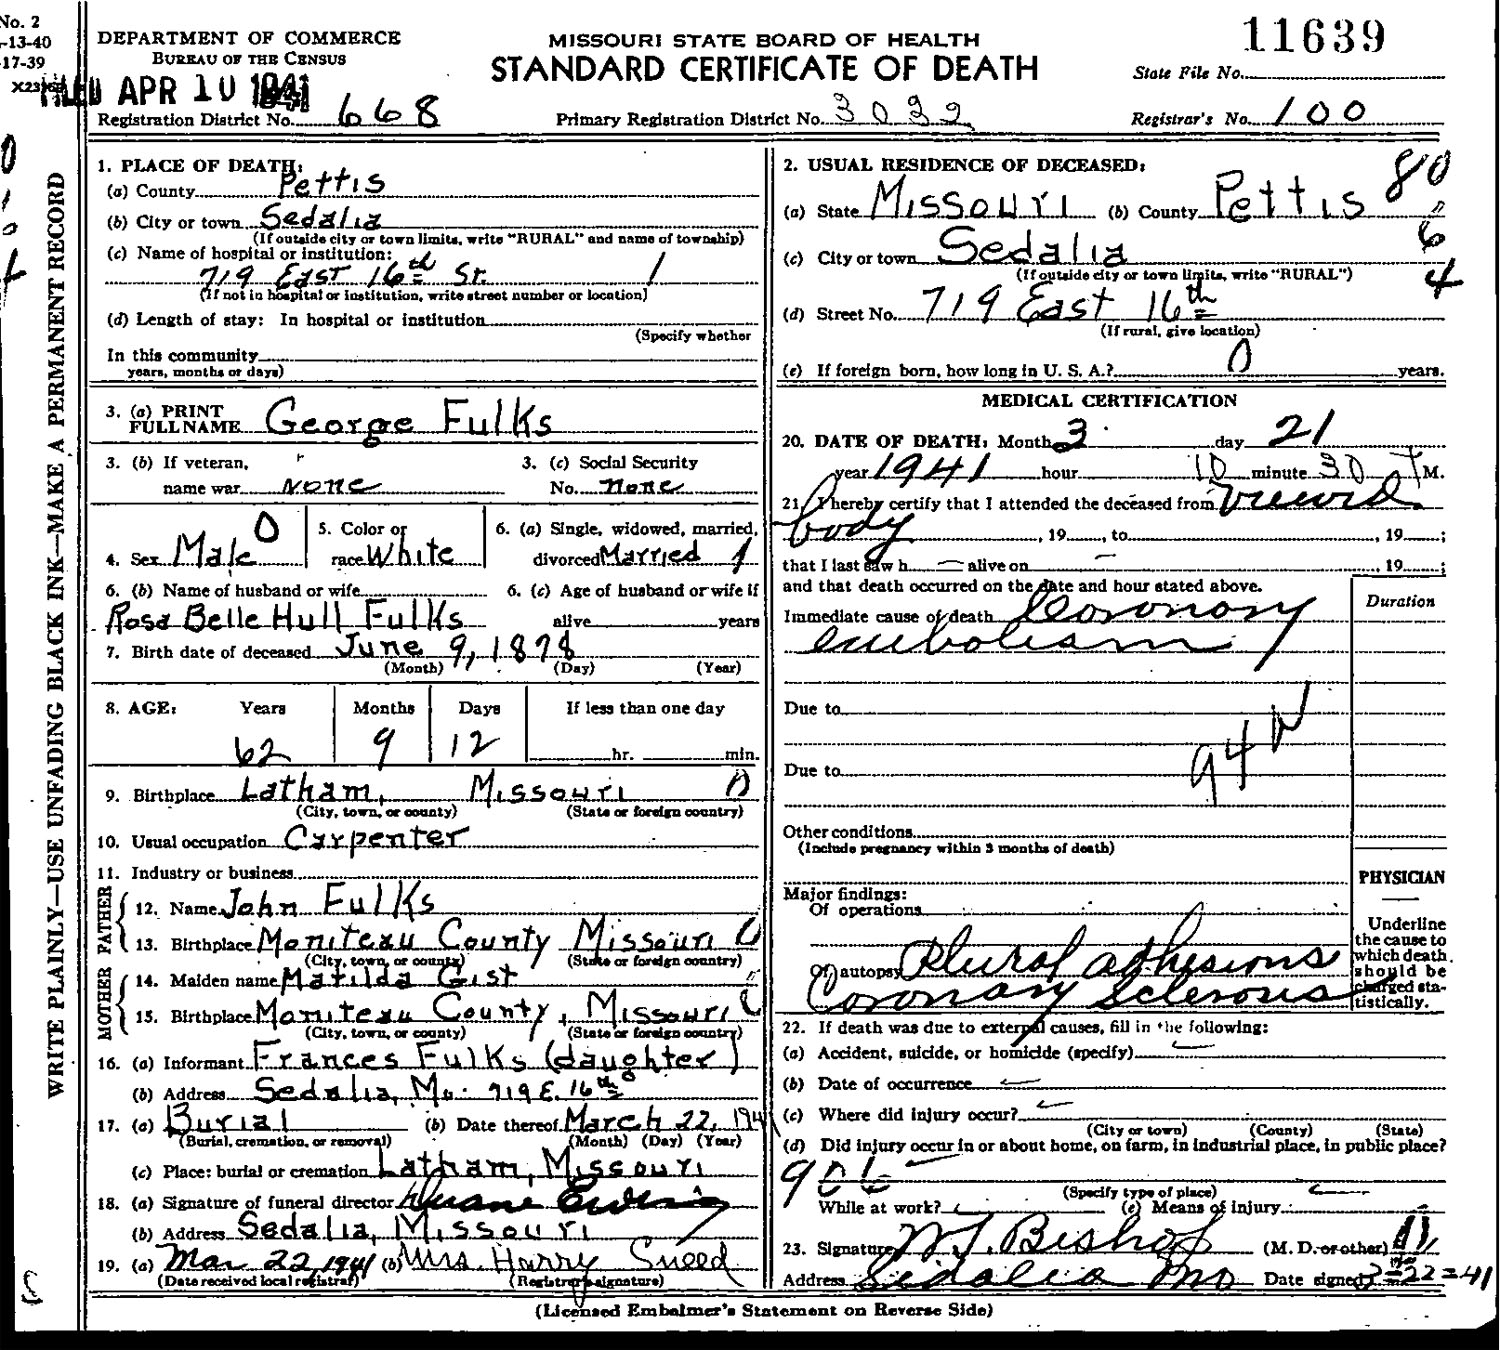 No. 2
-13-40
-17-39
DEPARTMENT OF COMMERCE
BUREAU OF THE CENSUS
APR 10 1941
MISSOURI STATE BOARD OF HEALTH
STANDARD CERTIFICATE OF DEATH
11639
State File No.
Registration District No. 668
Primary Registration District No. 3022
Registrar's No. 100
WRITE PLAINLY—USE UNFADING BLACK INK—MAKE A PERMANENT RECORD
1. PLACE OF DEATH:
(a) County Pettis
(b) City or town Sedalia
(If outside city or town limits, write "RURAL" and name of township)
(c) Name of hospital or institution:
719 East 16th St. 1
(If not in hospital or institution, write street number or location)
(d) Length of stay: In hospital or institution
(Specify whether
In this community
years, months or days)
2. USUAL RESIDENCE OF DECEASED:
80
(a) State Missouri (b) County Pettis
6
(c) City or town Sedalia
(If outside city or town limits, write "RURAL")
4
(d) Street No. 719 East 16th
(If rural, give location)
(e) If foreign born, how long in U. S. A.? 0 years.
3. (a) PRINT FULL NAME George Fulks
3. (b) If veteran, name war none
3. (c) Social Security No. none
4. Sex Male 0
5. Color or race White
6. (a) Single, widowed, married, divorced Married 1
6. (b) Name of husband or wife
Rosa Belle Hull Fulks
6. (c) Age of husband or wife if alive years
7. Birth date of deceased June 9, 1878
(Month) (Day) (Year)
8. AGE: Years Months Days If less than one day
62 9 12 hr. min.
9. Birthplace Latham, Missouri 0
(City, town, or county) (State or foreign country)
10. Usual occupation Carpenter
11. Industry or business
FATHER
12. Name John Fulks
13. Birthplace Moniteau County Missouri
(City, town, or county) (State or foreign country)
MOTHER
14. Maiden name Matilda Gist
15. Birthplace Moniteau County, Missouri
(City, town, or county) (State or foreign country)
16. (a) Informant Frances Fulks (daughter)
(b) Address Sedalia, Mo. 719 E. 16th
17. (a) Burial (b) Date thereof March 22, 1941
(Burial, cremation, or removal) (Month) (Day) (Year)
(c) Place: burial or cremation Latham, Missouri
18. (a) Signature of funeral director Duane Ewing
(b) Address Sedalia, Missouri
19. (a) Mar 22, 1941 (b) Mrs. Harry Sneed
(Date received local registrar) (Registrar's signature)
MEDICAL CERTIFICATION
20. DATE OF DEATH: Month 3 day 21
year 1941 hour 10 minute 30 M.
21. I hereby certify that I attended the deceased from viewed
body , 19 , to , 19 ;
that I last saw h — alive on , 19 ;
and that death occurred on the date and hour stated above.
Duration
Immediate cause of death Coronary
embolism
Due to
94
Due to
Other conditions
(Include pregnancy within 3 months of death)
PHYSICIAN
Underline the cause to which death should be charged statistically.
Major findings:
Of operations
Of autopsy Plural adhesions
Coronary Sclerosis
22. If death was due to external causes, fill in the following:
(a) Accident, suicide, or homicide (specify)
(b) Date of occurrence
(c) Where did injury occur?
(City or town) (County) (State)
(d) Did injury occur in or about home, on farm, in industrial place, in public place?
(Specify type of place)
While at work? (e) Means of injury
23. Signature W. J. Bishop (M. D. or other)
Address Sedalia Mo Date signed 3-22-41
(Licensed Embalmer's Statement on Reverse Side)